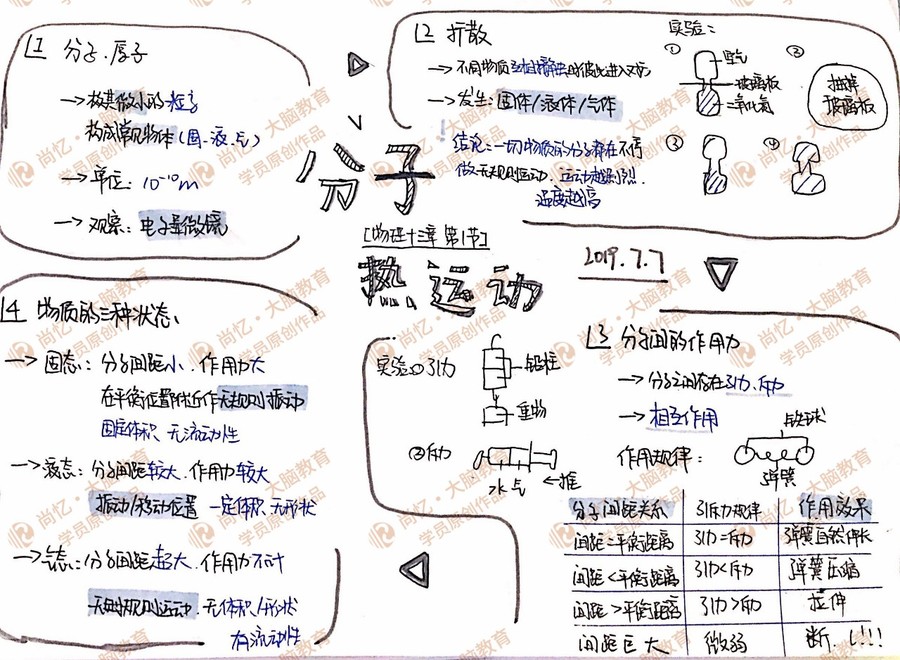 L1 分子.原子
→极其微小的粒子
构成常见物体(固、液、气)
→单位: 10⁻¹⁰m
→观察: 电子显微镜
分子
[物理十三章 第1节]
热运动
2019.7.7
L2 扩散
→不同物质互相接触时彼此进入对方
→发生: 固体/液体/气体
结论: 一切物质的分子都在不停
做无规则运动. 运动越剧烈.
温度越高
实验:
①
空气
玻璃板
二氧化氮
②
抽掉
玻璃板
③
④
L3 分子间的作用力
→分子之间存在引力、斥力
→相互作用
作用规律:
铁球
弹簧
实验① 引力
铅柱
重物
②斥力
水 气
←推
分子间距关系 引斥力规律 作用效果
间距=平衡距离 引力=斥力 弹簧自然伸长
间距<平衡距离 引力<斥力 弹簧压缩
间距>平衡距离 引力>斥力 拉伸
间距巨大 微弱 断.(!!!
L4 物质的三种状态、
→固态: 分子间距小. 作用力大
在平衡位置附近作无规则振动
固定体积、无流动性
→液态: 分子间距较大. 作用力较大
振动/移动位置 一定体积、无形状
→气态: 分子间距超大. 作用力不计
无规则运动. 无体积/形状
有流动性
尚忆·大脑教育
学员原创作品